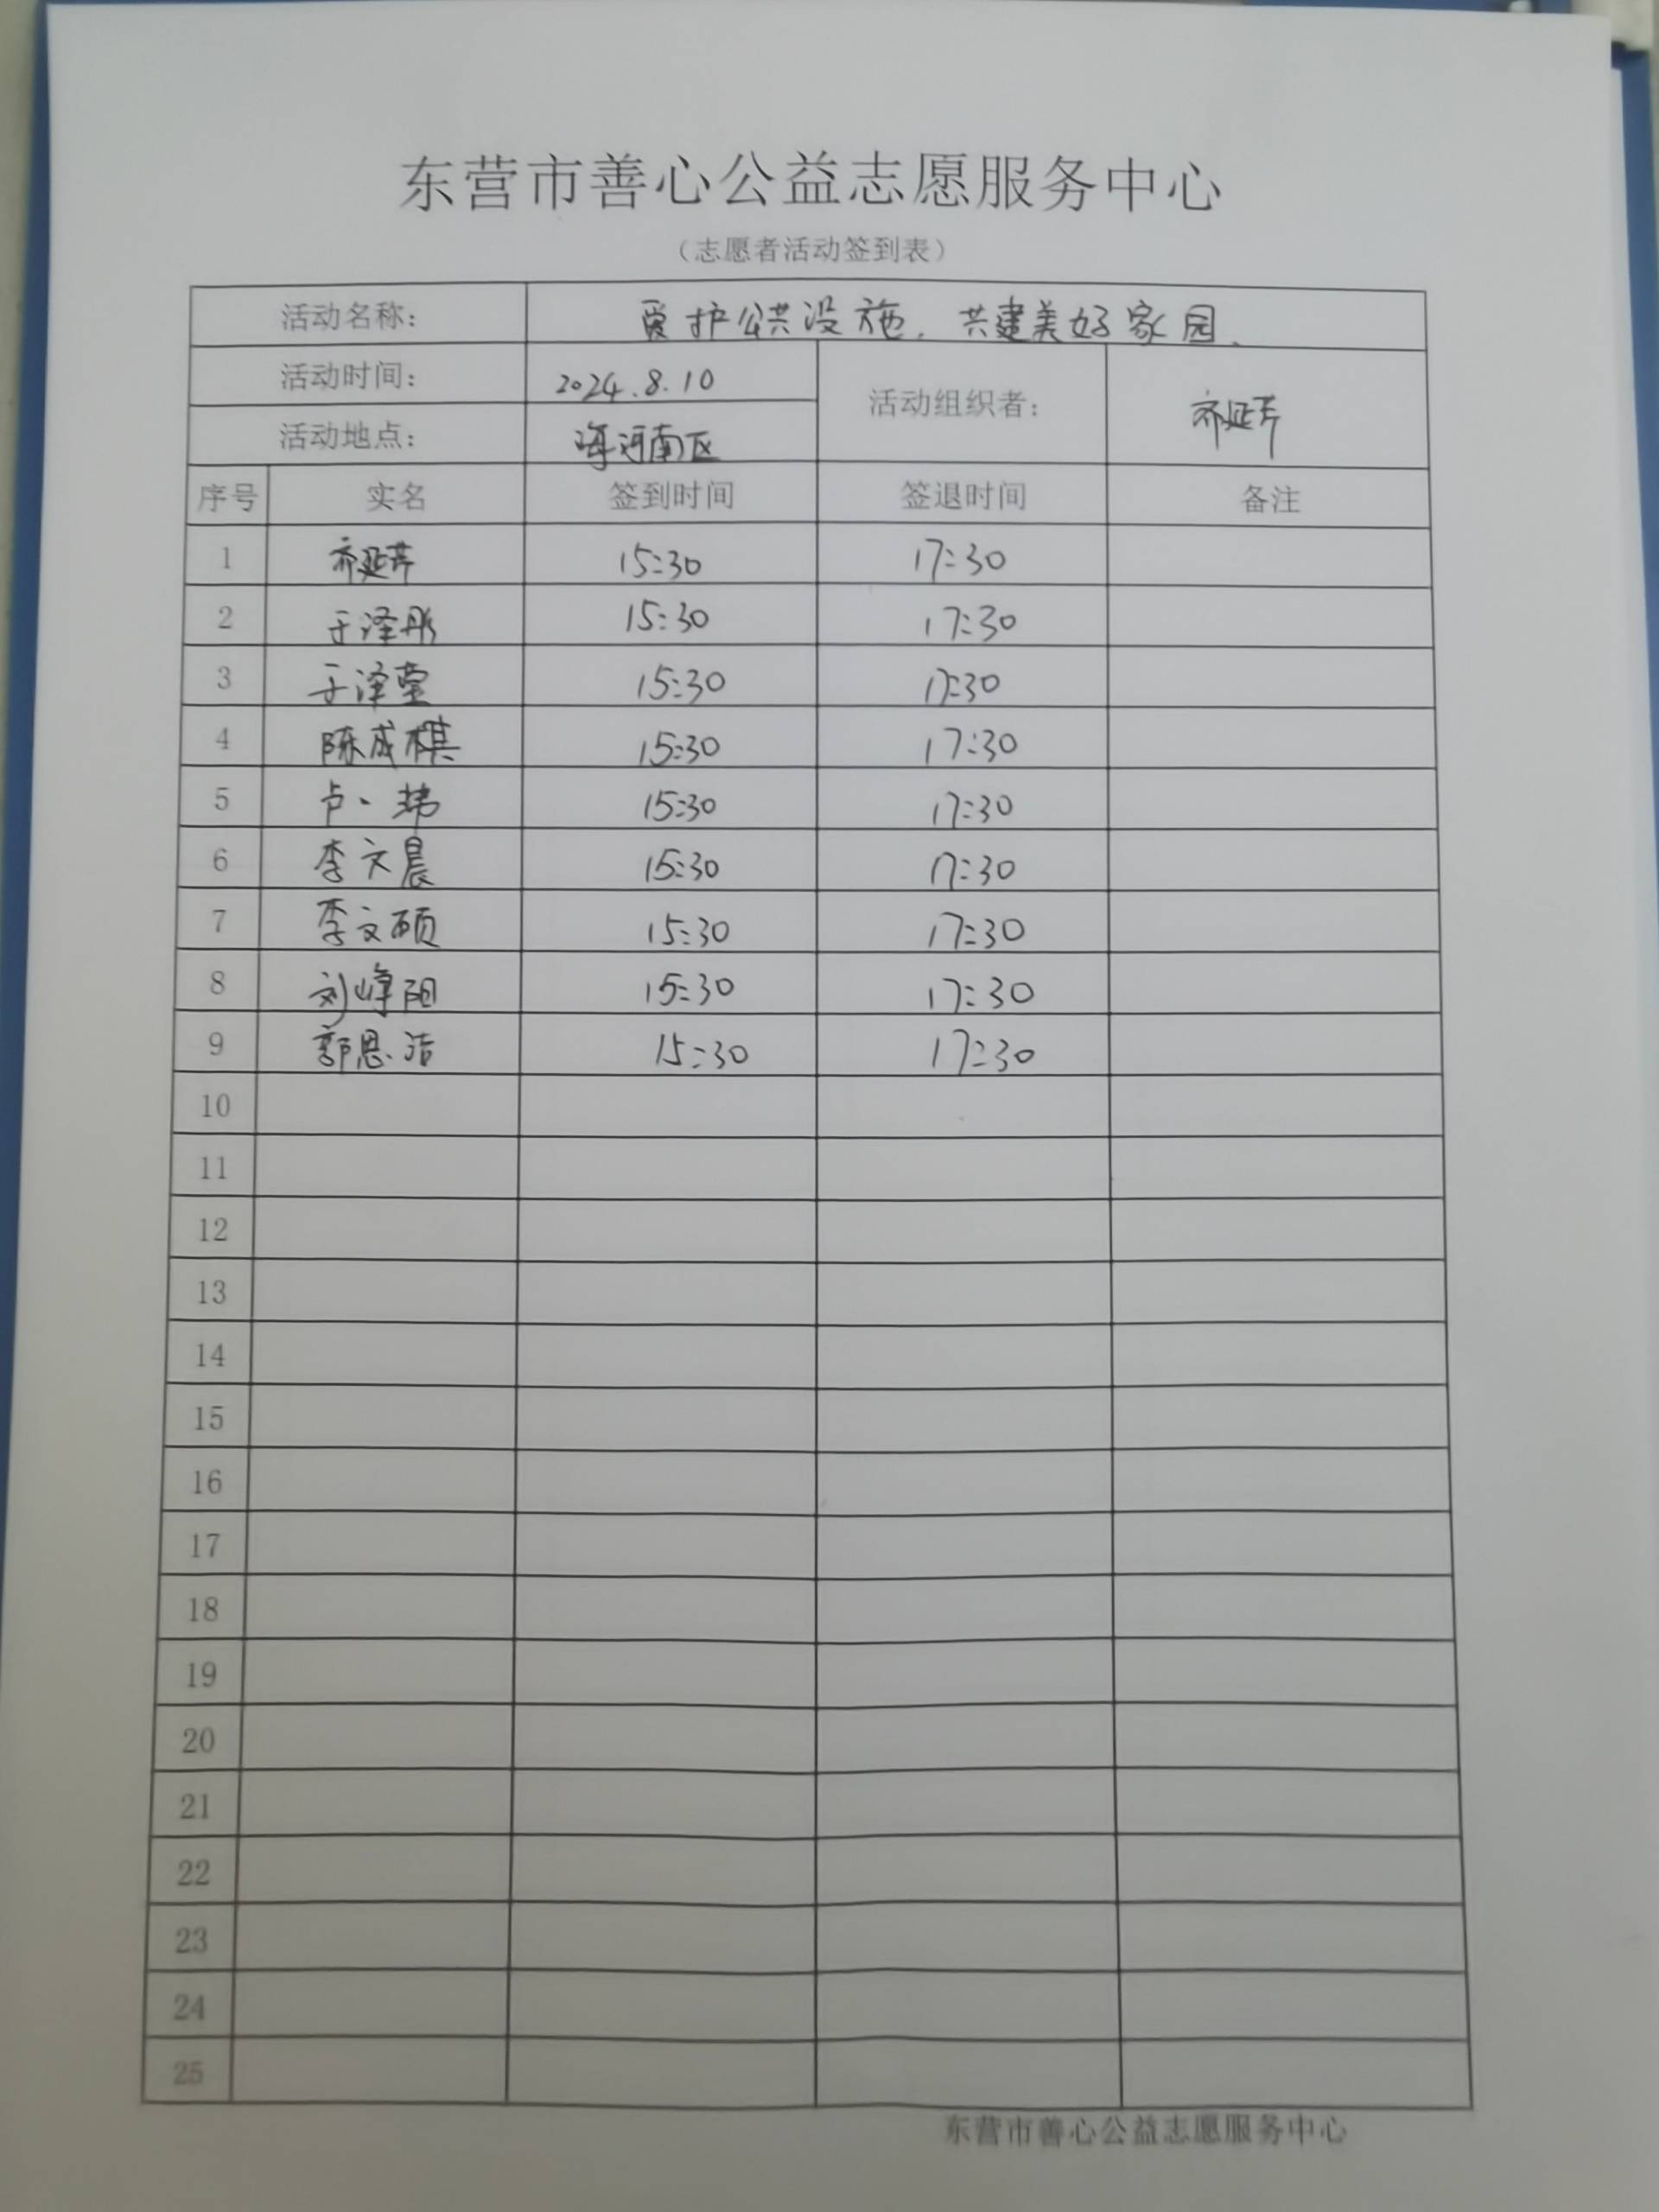 东营市善心公益志愿服务中心
（志愿者活动签到表）
活动名称： 爱护公共设施，共建美好家园、
活动时间： 2024.8.10 活动组织者： 齐延芹
活动地点： 海河南区
序号 实名 签到时间 签退时间 备注
1 齐延芹 15:30 17:30
2 于泽彤 15:30 17:30
3 于泽莹 15:30 17:30
4 陈成棋 15:30 17:30
5 卢 15:30 17:30
6 李文晨 15:30 17:30
7 李文硕 15:30 17:30
8 刘峰阳 15:30 17:30
9 郭恩洁 15:30 17:30
10
11
12
13
14
15
16
17
18
19
20
21
22
23
24
25
东营市善心公益志愿服务中心